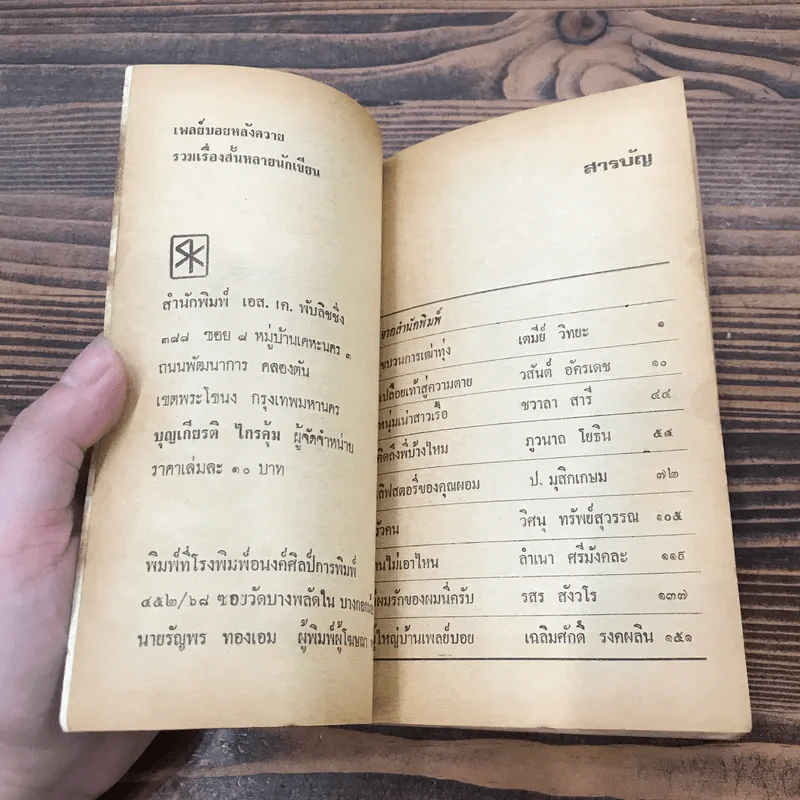 เพลย์บอยหลังควาย
รวมเรื่องสั้นหลายนักเขียน
SK
สำนักพิมพ์ เอส. เค. พับลิชชิ่ง
๓๘๘ ซอย ๘ หมู่บ้านเคหะนคร ๓
ถนนพัฒนาการ คลองตัน
เขตพระโขนง กรุงเทพมหานคร
บุญเกียรติ ไกรคุ้ม ผู้จัดจำหน่าย
ราคาเล่มละ ๑๐ บาท
พิมพ์ที่โรงพิมพ์อนงค์ศิลป์การพิมพ์
๔๕๒/๖๘ ซอยวัดบางพลัดใน
นายรัญพร ทองเอม ผู้พิมพ์ผู้โฆษณา
สารบัญ
จากสำนักพิมพ์
ขบวนการเฒ่าทุ่ง เตมีย์ วิทยะ ๑
เปลือยเท้าสู่ความตาย วสันต์ อัครเดช ๑๐
หนุ่มเน่าสาวเรื้อ ชวาลา สารี ๔๔
คิดถึงพี่บ้างไหม ภูวนาถ โยธิน ๕๔
ลิฟสตอรี่ของคุณผอม ป. มุสิกเกษม ๗๒
วิศนุ ทรัพย์สุวรรณ ๑๐๕
ไม่เอาไหน ลำเนา ศรีมังคละ ๑๑๙
ผมรักของผมนี่ครับ รสร สังวโร ๑๓๗
ใหญ่บ้านเพลย์บอย เฉลิมศักดิ์ รงคผลิน ๑๕๑